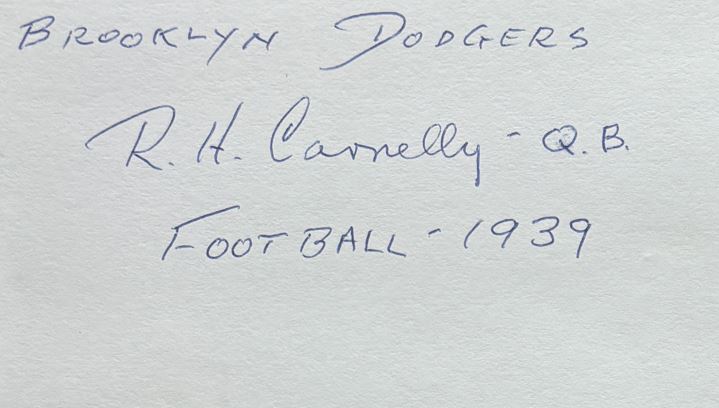 BROOKLYN DODGERS
R. H. Carnelly - Q. B.
FOOTBALL - 1939